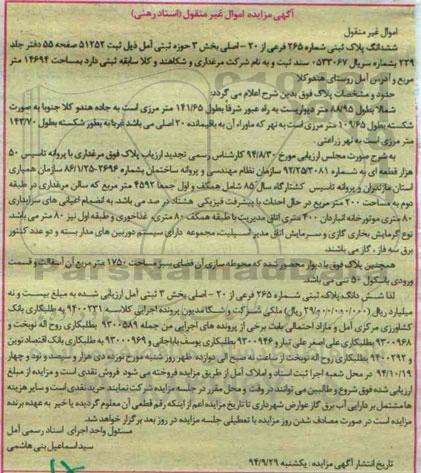 آگهی مزایده اموال غیر منقول (اسناد رهنی)
اموال غیر منقول
ششدانگ پلاک ثبتی شماره ۲۶۵ فرعی از ۲۰ - اصلی بخش ۳ حوزه ثبتی آمل ذیل ثبت ۵۱۲۵۲ صفحه ۵۵ دفتر جلد
۲۲۹ بشماره سریال ۰۵۳۳۰۶۷ سند ثبت و به نام شرکت مرغداری و شکاهند و کلا سابقه ثبتی دارد بمساحت ۱۴۶۹۴ متر
مربع و آدرس آمل روستای هندوکلا
حدود و مشخصات پلاک فوق بدین شرح اعلام می گردد:
شمالا بطول ۸۸/۹۵ متر دیواریست به راه عبور شرقا بطول ۱۴۱/۶۵ متر مرزی است به جاده هندو کلا جنوبا به صورت
شکسته بطول ۱۰۹/۶۵ متر مرزی است به نهر که ماوراء آن به باقیمانده ۲۰ اصلی می باشد غربا به بطور شکسته بطول ۱۴۳/۷۰
متر مرزی است به نهر زراعتی.
به شرح صورت مجلس ارزیابی مورخ ۹۴/۸/۳۰ کارشناس رسمی تجدید ارزیاب پلاک فوق مرغداری با پروانه تاسیس ۵۰
هزار قطعه ای به شماره ۹۲/۲۵/۳۰۸۱ سازمان نظام مهندسی و پروانه ساختمان بشماره ۸۶/۱/۲۵-۲۶۹۴ سازمان همیاری
استان مازندران و پروانه تاسیس کشتارگاه سال ۸۵ شامل همکف و اول جمعا ۴۵۹۲ متر مربع که سالن مرغداری در طبقه
دوم به مساحت ۲۰۰ متر مربع در حال احداث با پیشرفت فیزیکی هشتاد در صد می باشد. به انضمام اعیانی های سرایداری
۸۰ متری موتورخانه انباردان ۴۰۰ متری اتاق مدیریت با طبقه همکف ۸۰ متری، غذاخوری و طبقه اول نیز ۸۰ متر می باشد.
نوع گرمایش بخاری گازی و سرمایش اتاق مدیر اسپیلیت، مجموعه دارای سیستم دوربین های مدار بسته و دو عدد کنتور
برق سه فاز، گاز می باشند.
همچنین پلاک فوق با دیوار محصور شده که محوطه سازی آن فضای سبز مساحت ۱۷۵۰ متر مربع آن آسفالت و قسمت
ورودی باسکول ۵۰ تنی می باشد.
لذا شش دانگ پلاک ثبتی شماره ۲۶۵ فرعی از ۲۰ - اصلی بخش ۳ ثبتی آمل ارزیابی شده به مبلغ بیست و نه
میلیارد ریال (۲۹/۰۰۰/۰۰۰/۰۰۰ ریال) ملکی شرکت و شکا مدیون پرونده اجرایی کلاسه ۹۴۰۰۲۳۱ به طلبکاری بانک
کشاورزی مرکزی آمل و مازاد احتمالی بابت برخی از پرونده های اجرایی من جمله ۹۳۰۰۵۸۹ بطلبکاری روح اله نوبخت و
۹۳۰۰۹۶۸ بطلبکاری علی اصغر علی تبار و ۹۳۰۰۹۴۶ بطلبکاری یوسف باباجانی و ۹۳۰۰۹۶۹ به طلبکاری بانک اقتصاد نوین
و ۹۴۰۰۲۹۲ بطلبکاری روح اله نوبخت از ساعت نه صبح الی دوازده ظهر روز شنبه مورخ نوزده دی هزار و سیصد و نود و چهار
۹۴/۱۰/۱۹ در محل شعبه اجرا ثبت اسناد و املاک آمل از طریق مزایده فروخته می شود. فروش نقدی است و مزایده از مبلغ
ارزیابی شده فوق شروع و طالبین می توانند در وقت و محل مقرر در جلسه مزایده شرکت نمایند خرید نقدی است و سایر هزینه
ها مشتمل بر دارایی آب برق گاز عوارض شهرداری تا تاریخ مزایده اعم از اینکه رقم قطعی آن معلوم گردیده یا خیر به عهده برنده
مزایده است در صورت مصادف شدن روز مزایده با تعطیلی جلسه مزایده در روز بعد برگزار خواهد شد.
مسئول واحد اجرای اسناد رسمی آمل
سید اسماعیل بنی هاشمی
تاریخ انتشار آگهی مزایده: یکشنبه ۹۴/۹/۲۹